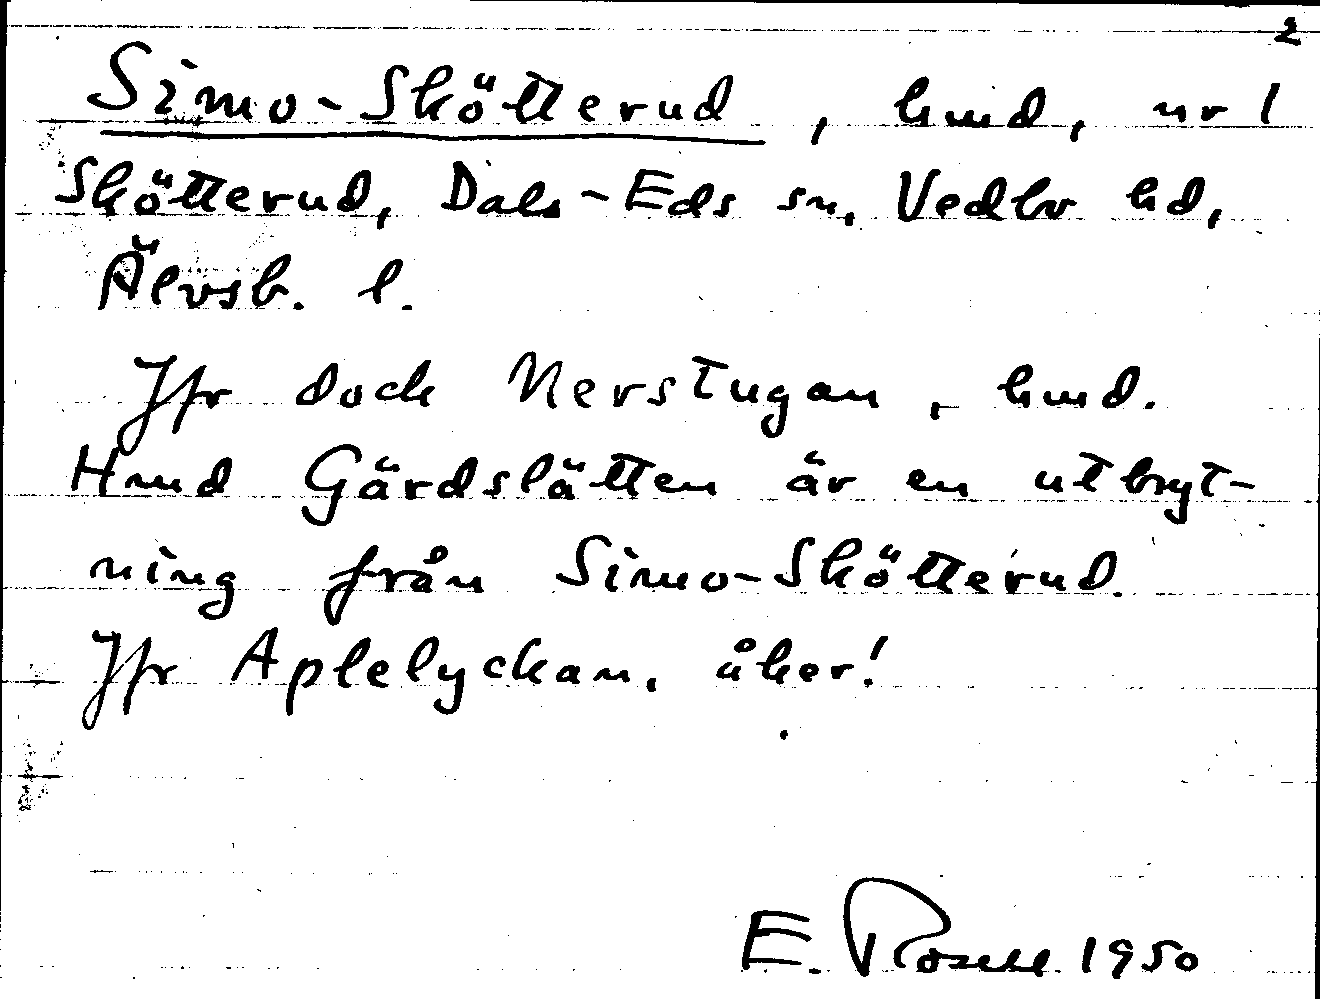 2
Simo-Skötterud, hmd, nr 1
Skötterud, Dals-Eds sn, Vedbo hd,
Älvsb. l.
Jfr dock Nerstugan, hmd.
Hmd Gärdslätten är en utbryt-
ning från Simo-Skötterud.
Jfr Aplelyckan, åker!
E. Rosell 1950